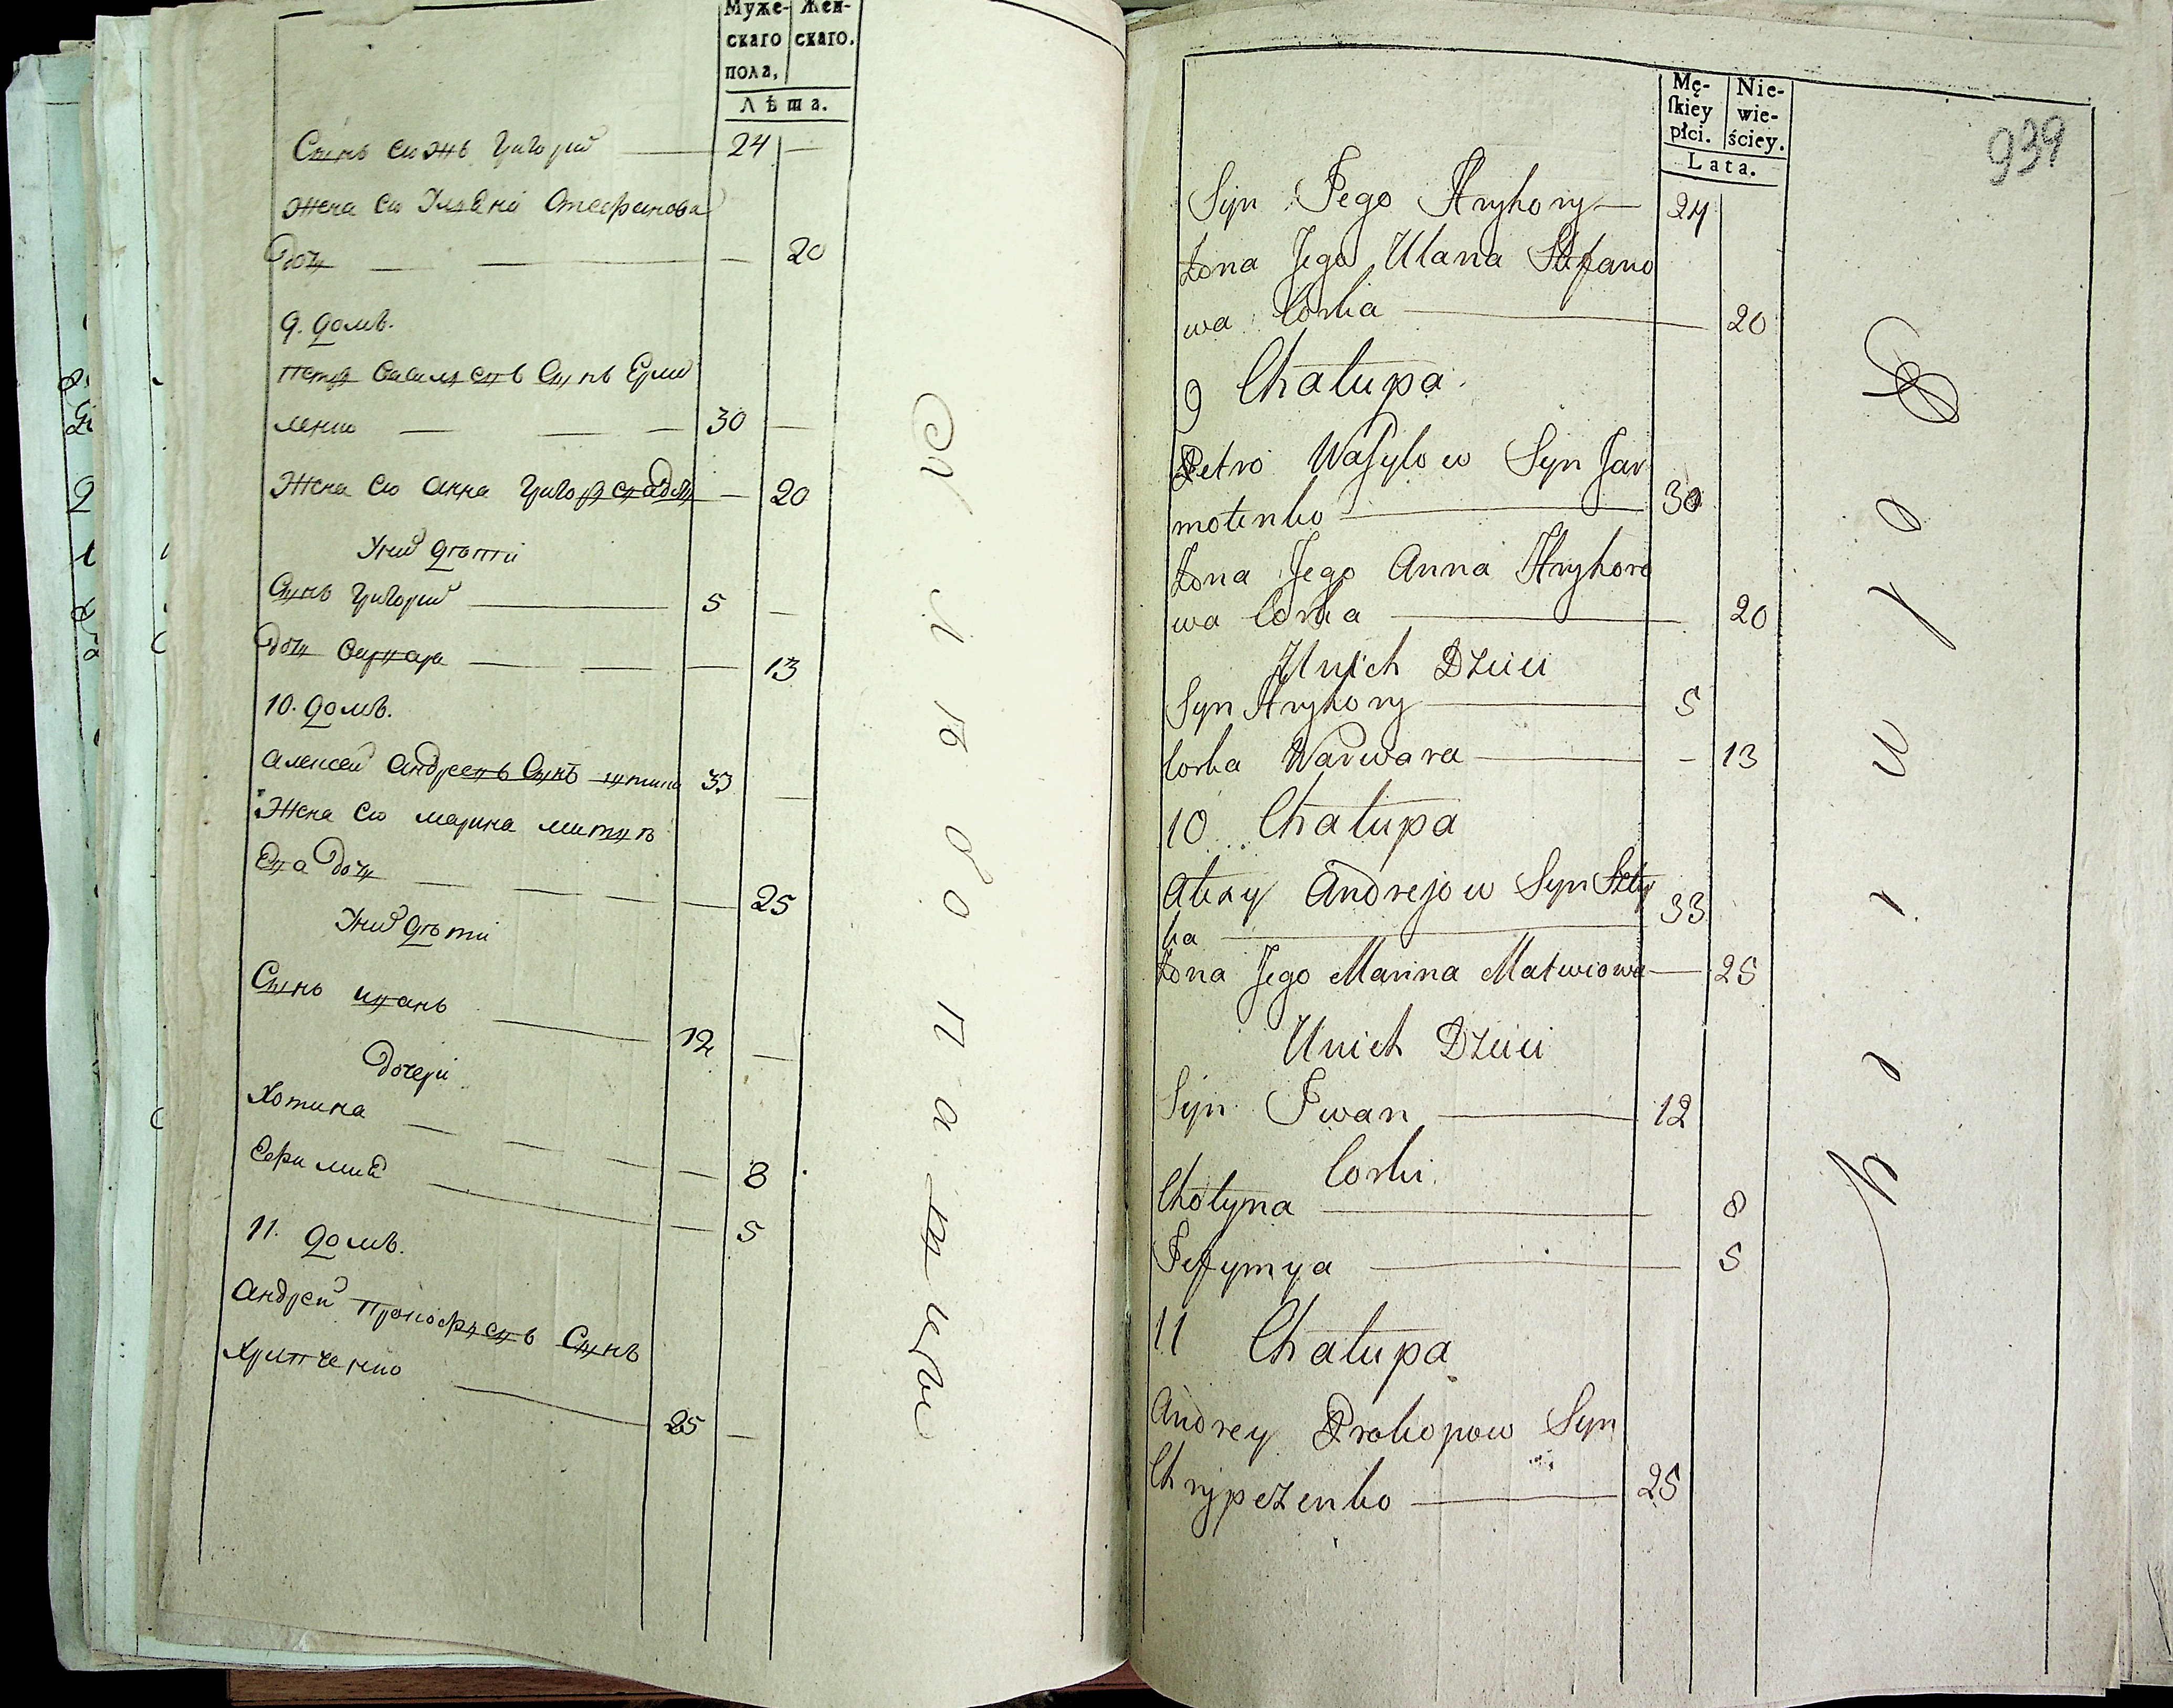 Муже-
скаго
пола,
Жен-
скаго.
Лѣта.
Сынъ его жъ Григорий 24
Жена его Улꙗна Стефанова
дочъ 20
9. домъ.
Петръ Василиевъ Сынъ Ермо
ленко 30
Жена его Анна Григориева дочь 20
У них дѣти
Сынъ Григорий 5
дочъ Варвара 13
10. домъ.
Алексей Андреевъ Сынъ 33
Жена его Марина Матвѣ
ева дочъ 25
У них дѣти
Сынъ Иванъ 12
дочери
Хотина 8
Ефимия 5
11. домъ.
Андрей Прокофиевъ Сынъ
Хрипченко 25
Mę-
ſkiey
płci.
Nie-
wie-
ściey.
Lata.
939
Syn Jego Hryhory 24
Żona Jego Ulana Stefano
wa Corka 20
9 Chałupa.
Petro Wasylow Syn Jar
molenko 30
Żona Jego Anna Hryhoro
wa Corka 20
U nich Dzieci
Syn Hryhory 5
Corka Warwara 13
10 Chałupa
Alexy Andrejow Syn
ka 33
Żona Jego Marina Matwiowa 25
U nich Dzieci
Syn Iwan 12
Corki.
Chotyna 8
Jefymya 5
11 Chałupa
Andrey Prokopow Syn
Chrypczenko 25